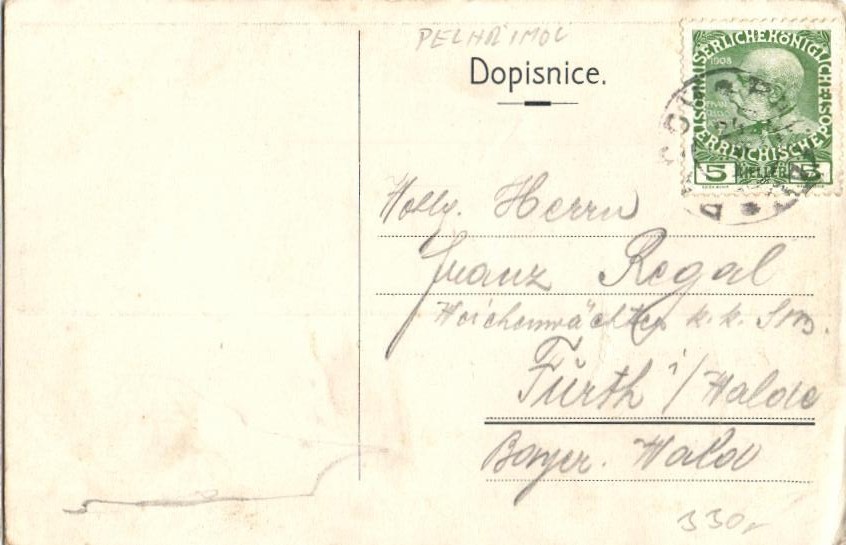 PELHŘIMOV
Dopisnice.
1908
KAISERLICHEKÖNIGLICHE
ÖSTERREICHISCHEPOST
5 HELLER 5
Herrn
Franz Regal
Weichenwächter k. k. Stb.
Fürth i/Walde
Bayer. Wald
330,-